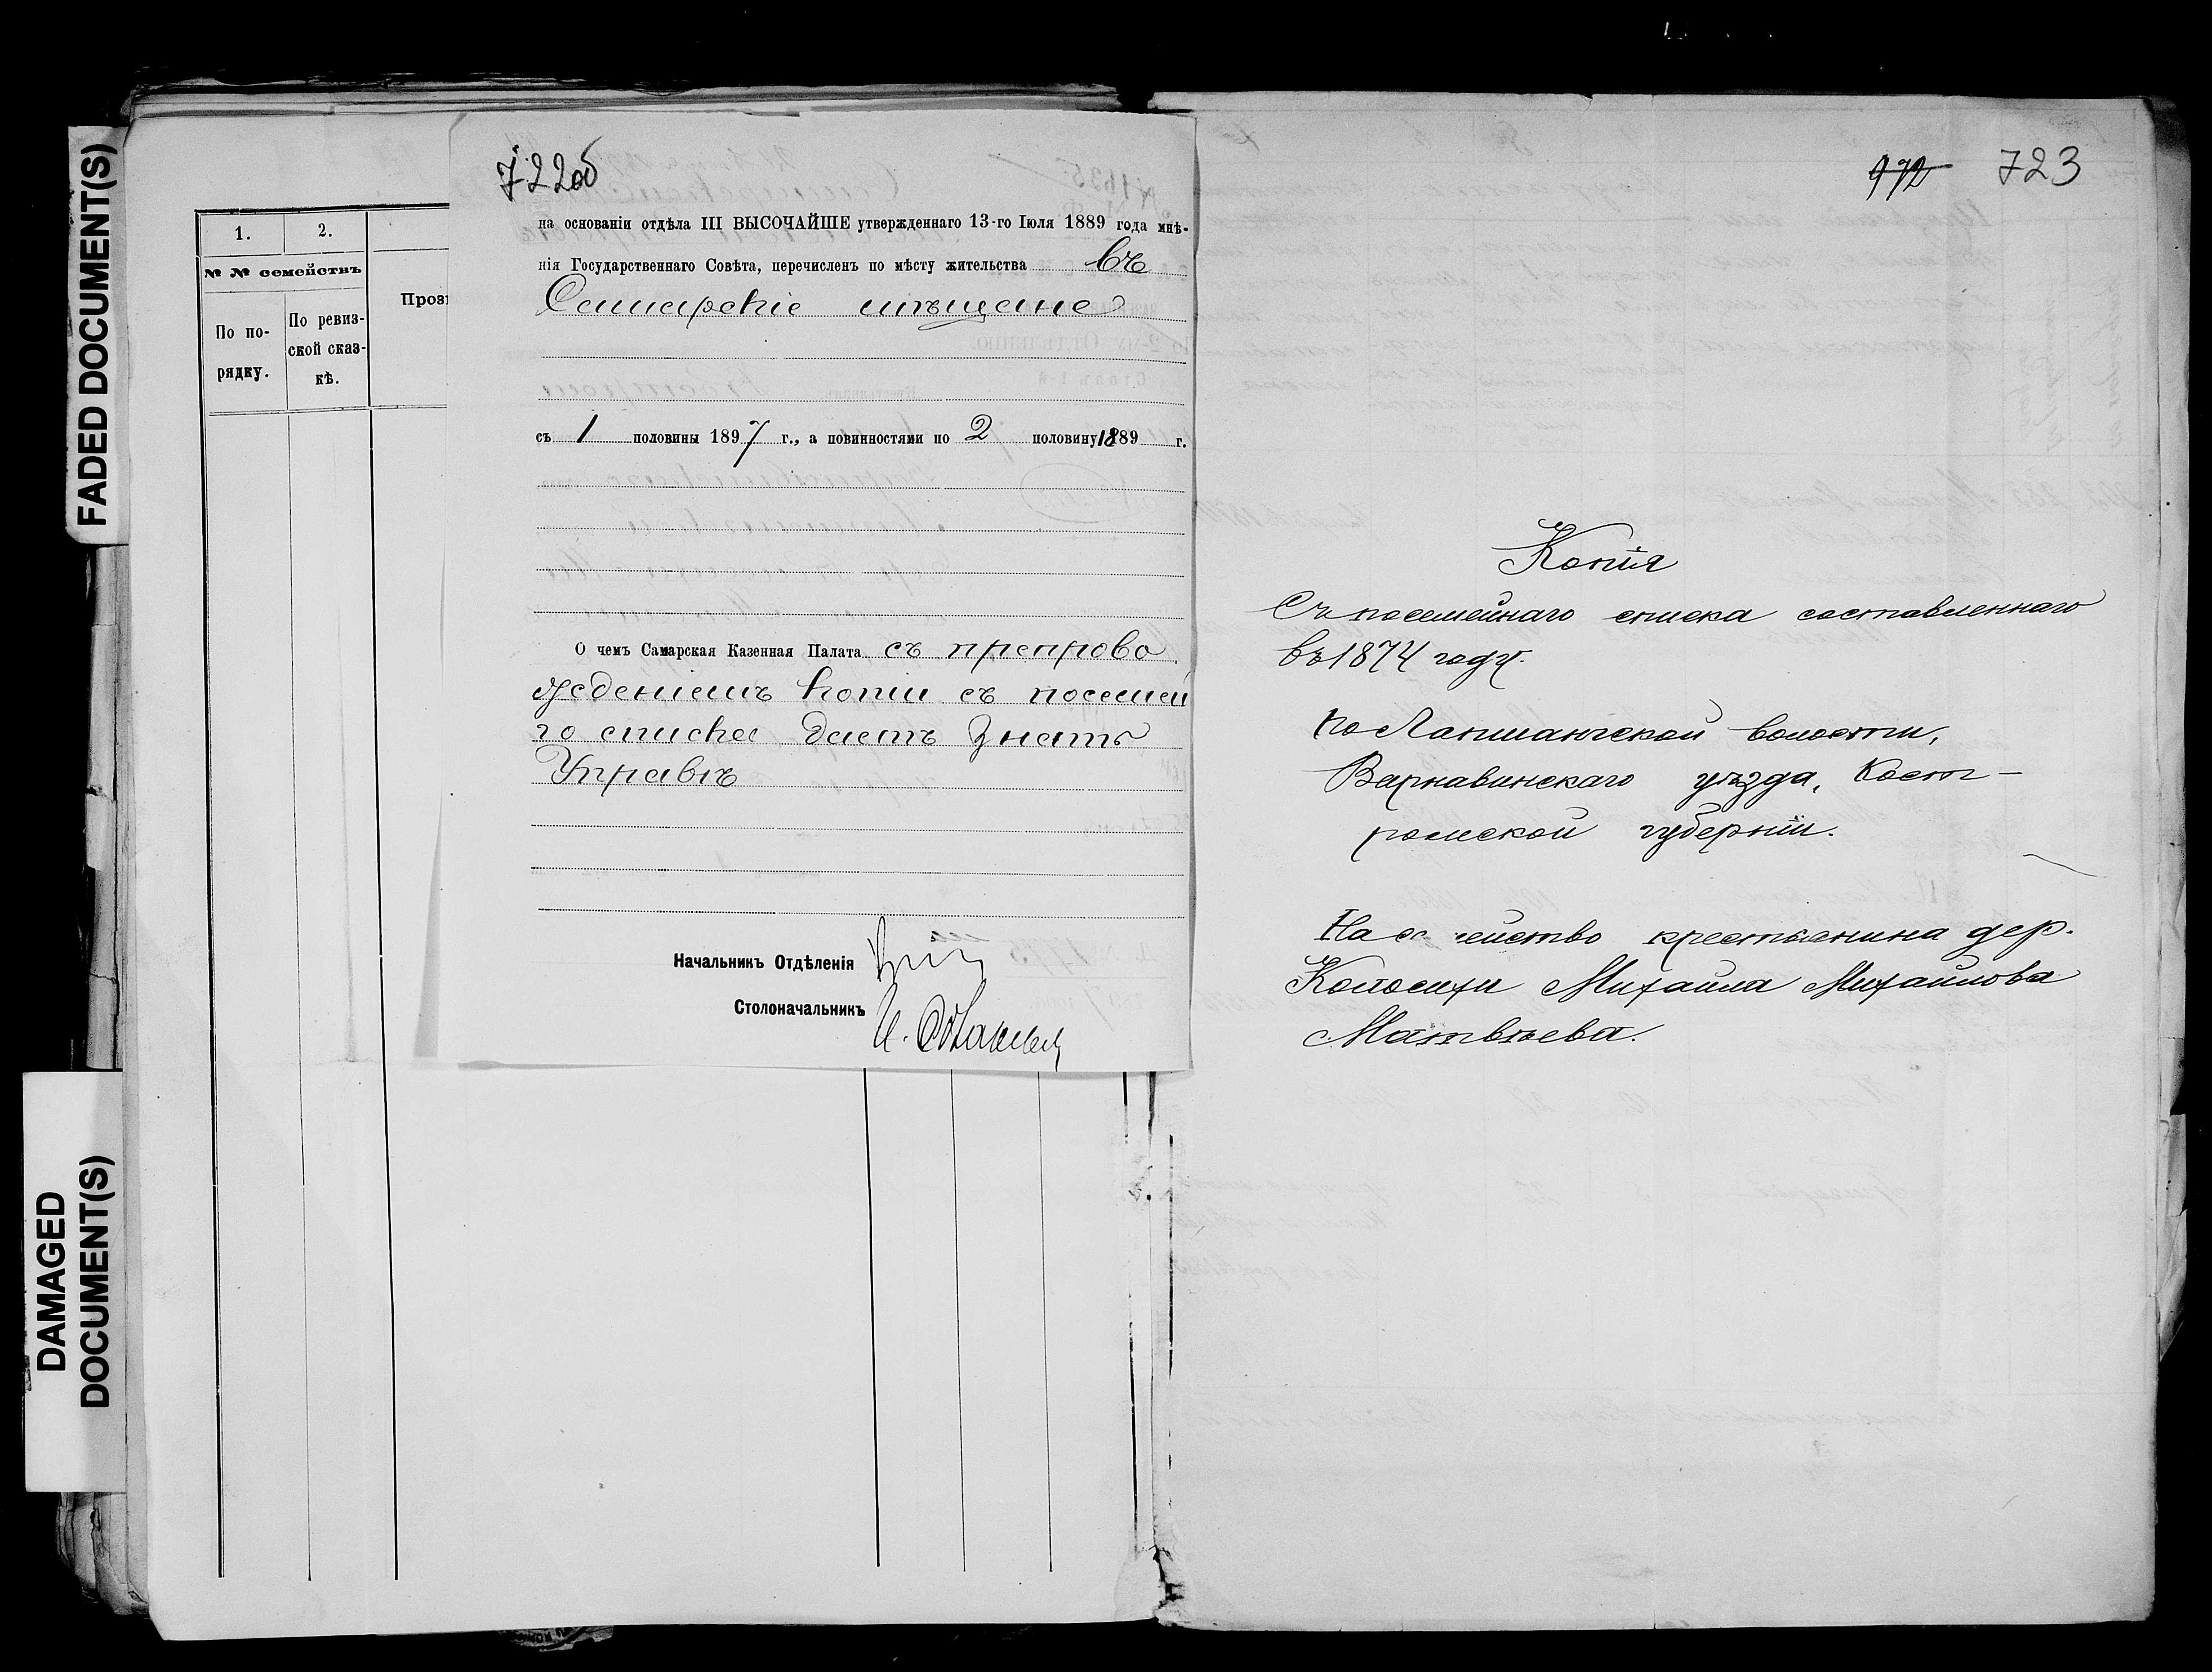 FADED DOCUMENT(S)
DAMAGED
DOCUMENT(S)
1.
2.
№ № семействъ
По по-
рядку.
По ревиз-
ской сказ-
кѣ.
Проз
722об
на основаніи отдѣла III ВЫСОЧАЙШЕ утвержденнаго 13-го Іюля 1889 года мнѣ-
нія Государственнаго Совѣта, перечисленъ по мѣсту жительства въ
Самарскіе мѣщане
съ 1 половины 1897 г., а повинностями по 2 половину 189 г.
О чемъ Самарская Казенная Палата съ препрово
жденіемъ копіи съ посемей
го списка даетъ знать
Управѣ
Начальникъ Отдѣленія
Столоначальникъ
972 723
Копія
Съ посемейнаго списка составленнаго
въ 1874 году.
по Лапшангской волости,
Варнавинскаго уѣзда, Кост-
ромской губерніи.
На с ейство крестьянина дер.
Колосихи Михаила Михайлова
Матвѣева.